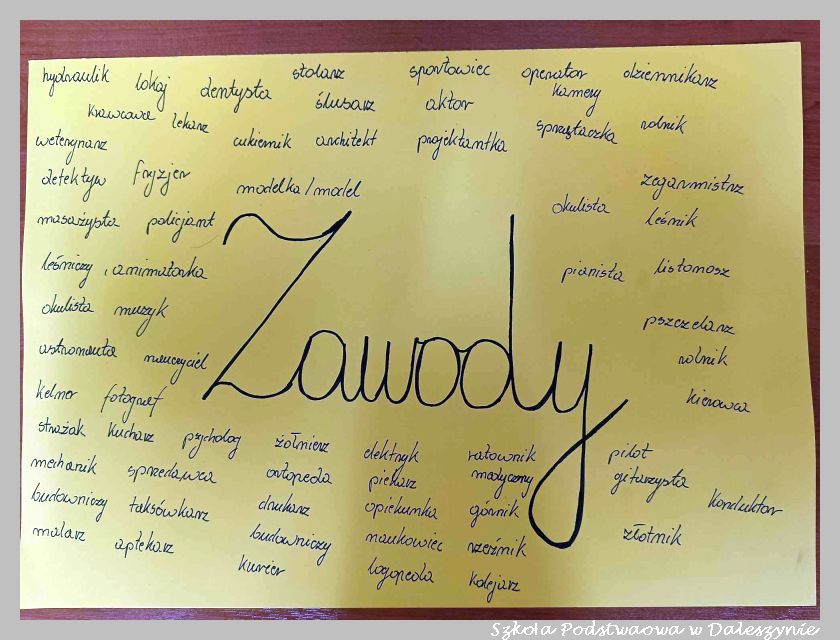 hydraulik lokaj dentysta stolarz sportowiec operator kamery dziennikarz
krawcowa lekarz ślusarz aktor
weterynarz cukiernik architekt projektantka sprzątaczka rolnik
detektyw fryzjer modelka/model zegarmistrz
masażysta policjant okulista leśnik
leśniczy, animatorka pianista listonosz
Zawody
okulista muzyk pszczelarz
astronauta nauczyciel rolnik
kelner fotograf kierowca
strażak kucharz psycholog żołnierz elektryk ratownik medyczny pilot
mechanik sprzedawca ortopeda piekarz gitarzysta
budowniczy taksówkarz drukarz opiekunka górnik konduktor
malarz aptekarz budowniczy naukowiec rzeźnik złotnik
kurier logopeda kolejarz
Szkoła Podstwaowa w Daleszynie